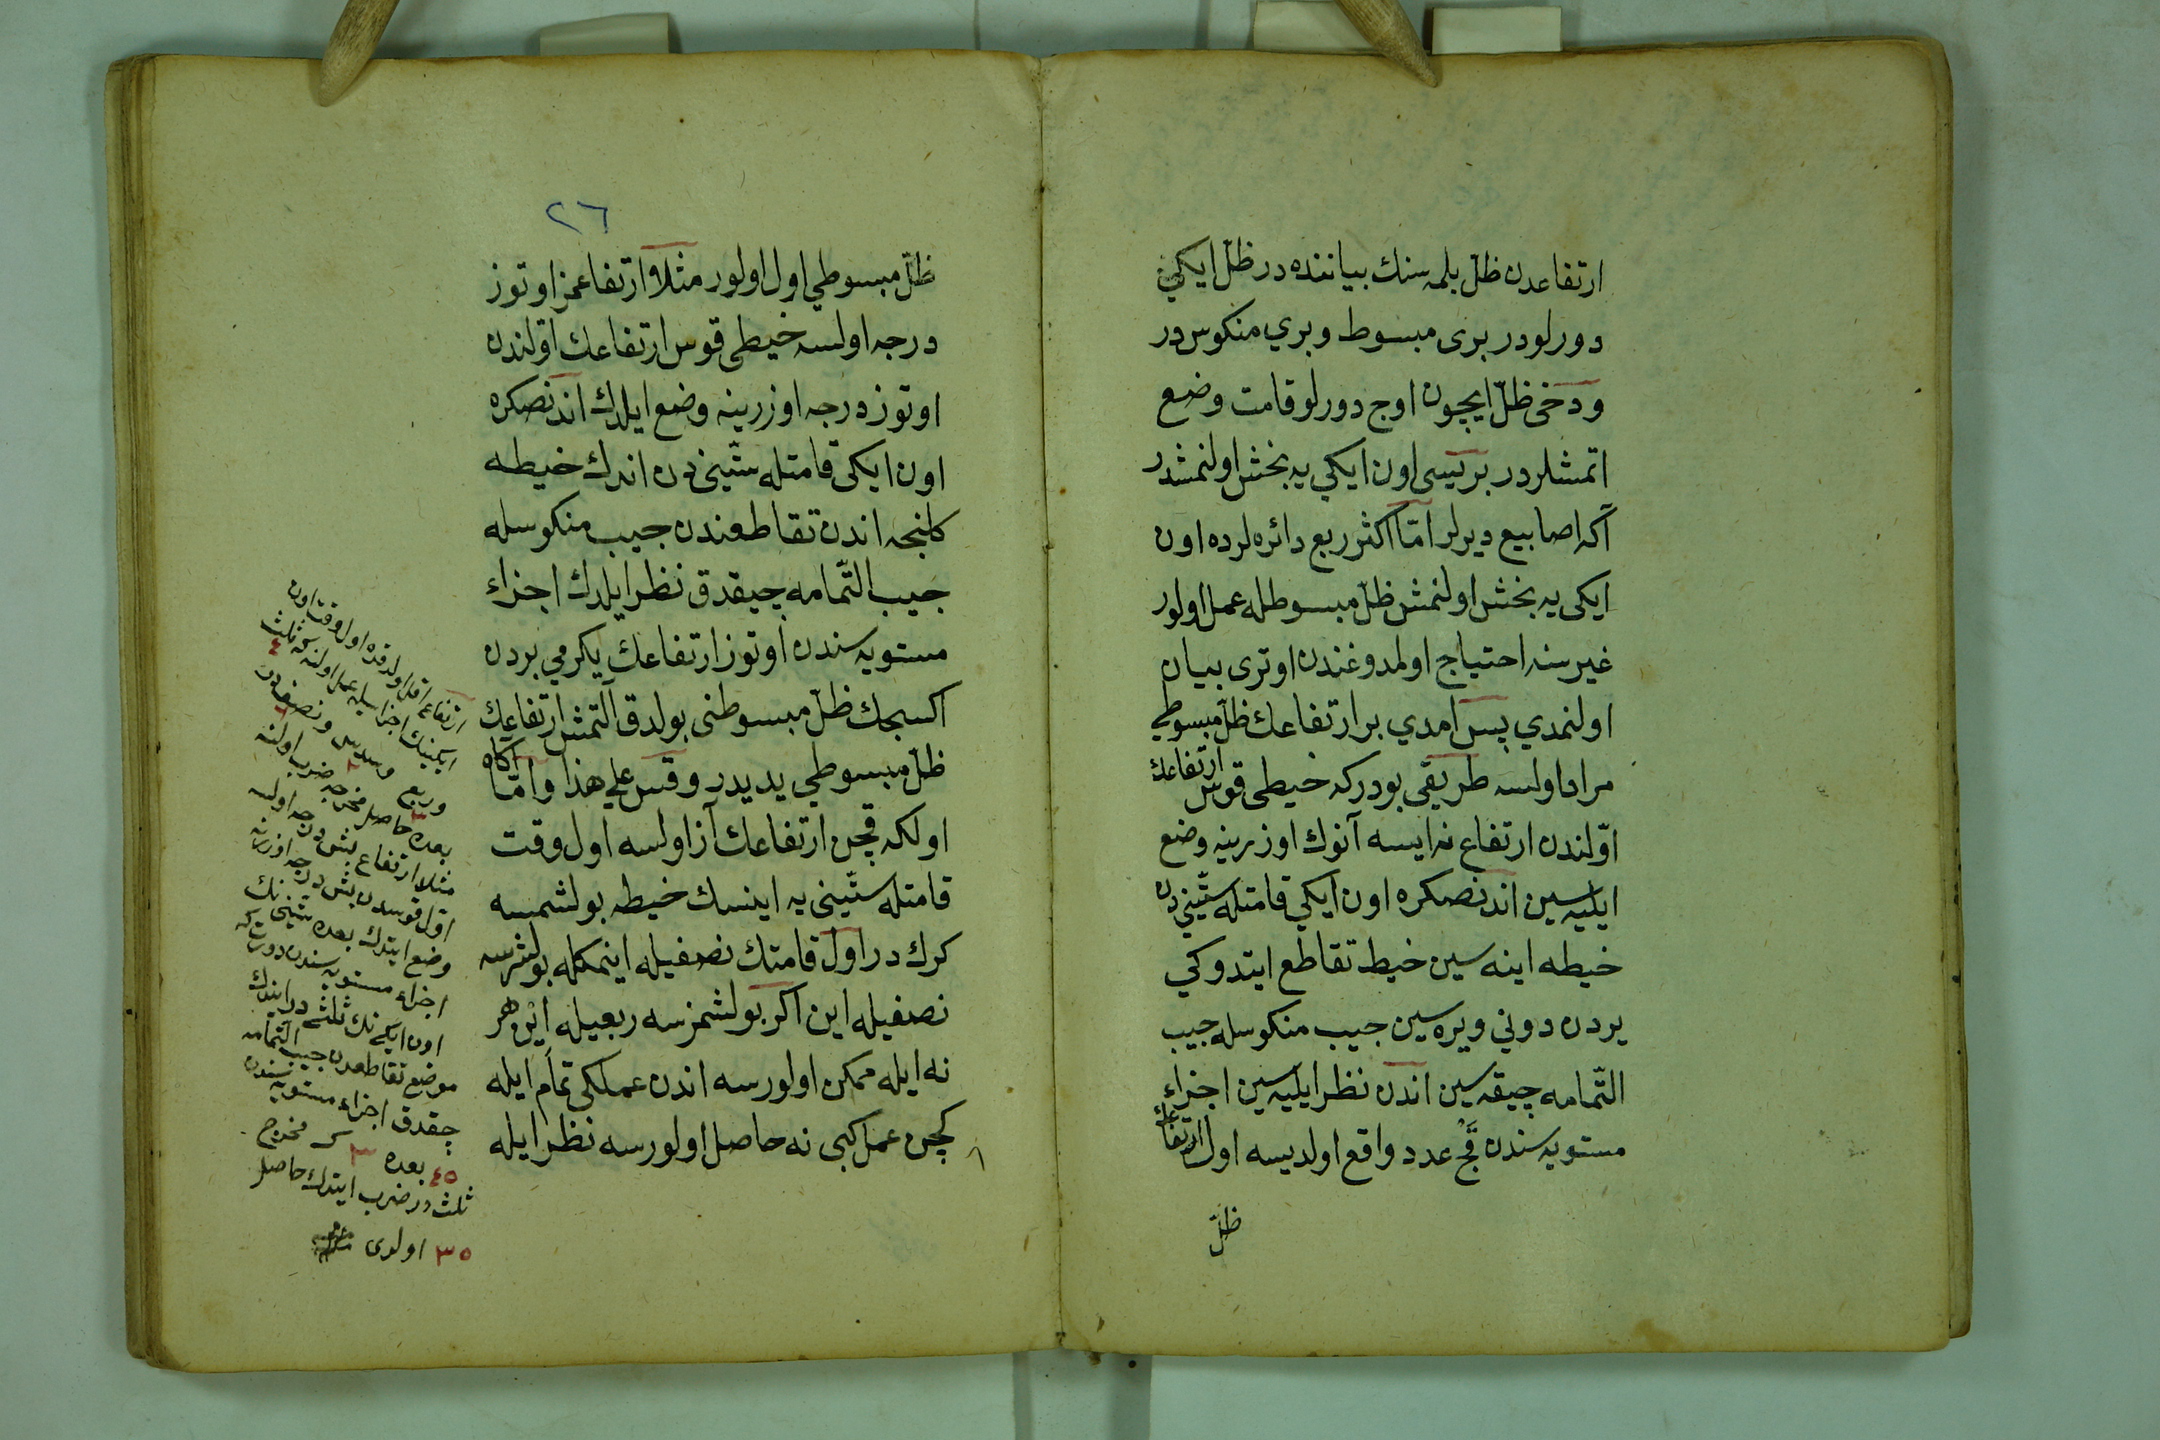 ارتفاعدن ظلّ بلمه سنك بياننده در ظلّ ايكي
دورلودر برى مبسوط وبري منكوس در
ودخى ظلّ ايچون اوج دورلو قامت وضع
اتمشلردر بريسى اون ايكي يه بخش اولنمشدر
آكه اصابيع ديرلر امّا اكثر ربع دائره لرده اون
ايكى يه بخش اولنمش ظلّ مبسوطله عمل اولور
غيرسنه احتياج اولمدوغندن اوترى بيان
اولنمدي پس امدي بر ارتفاعك ظلّ مبسوطي
مراد اولسه طريقى بودركه خيطى قوس ارتفاعك
اوّلندن ارتفاع نه ايسه آنوك اوزرينه وضع
ايليه سين اندنصكره اون ايكي قامتله ستّيني دن
خيطه اينه سين خيط تقاطع ايتدوكي
يردن دوني ويره سين جيب منكوسله جيب
التّمامه چيقه سين اندن نظر ايليه سين اجزاء
مستويه سندن قچ عدد واقع اولديسه اول ارتفاعك
ظلّ
٢٦
ظلّ مبسوطي اول اولور مثلا ارتفاعمز اوتوز
درجه اولسه خيطى قوس ارتفاعك اوّلندن
اوتوز درجه اوزرينه وضع ايلدك اندنصكره
اون ايكى قامتله ستّيني دن اندك خيطه
كلنجه اندن تقاطعندن جيب منكوسله
جيب التّمامه چيقدق نظر ايلدك اجزاء
مستويه سندن اوتوز ارتفاعك يكرمي بردن
اكسجك ظلّ مبسوطنى بولدق آلتمش ارتفاعك
ظلّ مبسوطي يديدر وقس على هذا وامّا آكاه
اولكه قچن ارتفاعك آز اولسه اول وقت
قامتله ستّينى يه اينسك خيطه بولشمسه
كرك در اول قامتك نصفيله اينمكله بولشرسه
نصفيله اين اكر بولشمزسه ربعيله اين هر
نه ايله ممكن اولورسه اندن عملكى تمام ايله
كچن عمل كبى نه حاصل اولورسه نظر ايله
ارتفاع اقل اولدقده اول وقت اون
ايكينك اجزاسيله عمل اولنه ثلث
وربع وسدس ونصف در
بعده حاصل مخرجه ضرب اولنه
مثلا ارتفاع بش درجه اولسه
اوّل قوسدن بش درجه اوزرينه
وضع ايتدك بعده ستينى نك
اجزاء مستويه سندن دورت كه
اون ايكى نك ثلثى در ايندك
موضع تقاطعدن جيب التّمامه
چقدق اجزاء مستويه سندن
٤٥ بعده ٣ كه مخرج
ثلث در ضرب ايتدك حاصل
٣٥ اولدى